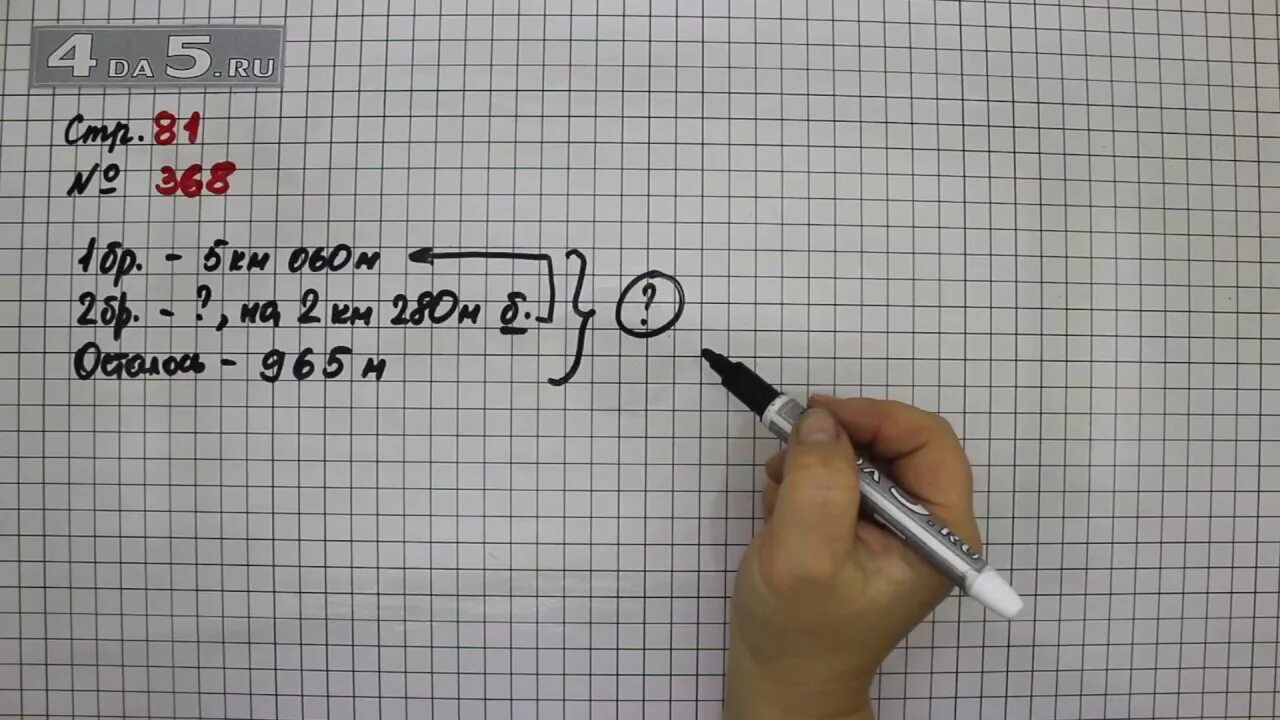 4 DA 5.RU
Стр. 81
№ 368
1бр. - 5км 060м
2бр. - ?, на 2 км 280м б.
Осталось - 965 м
?